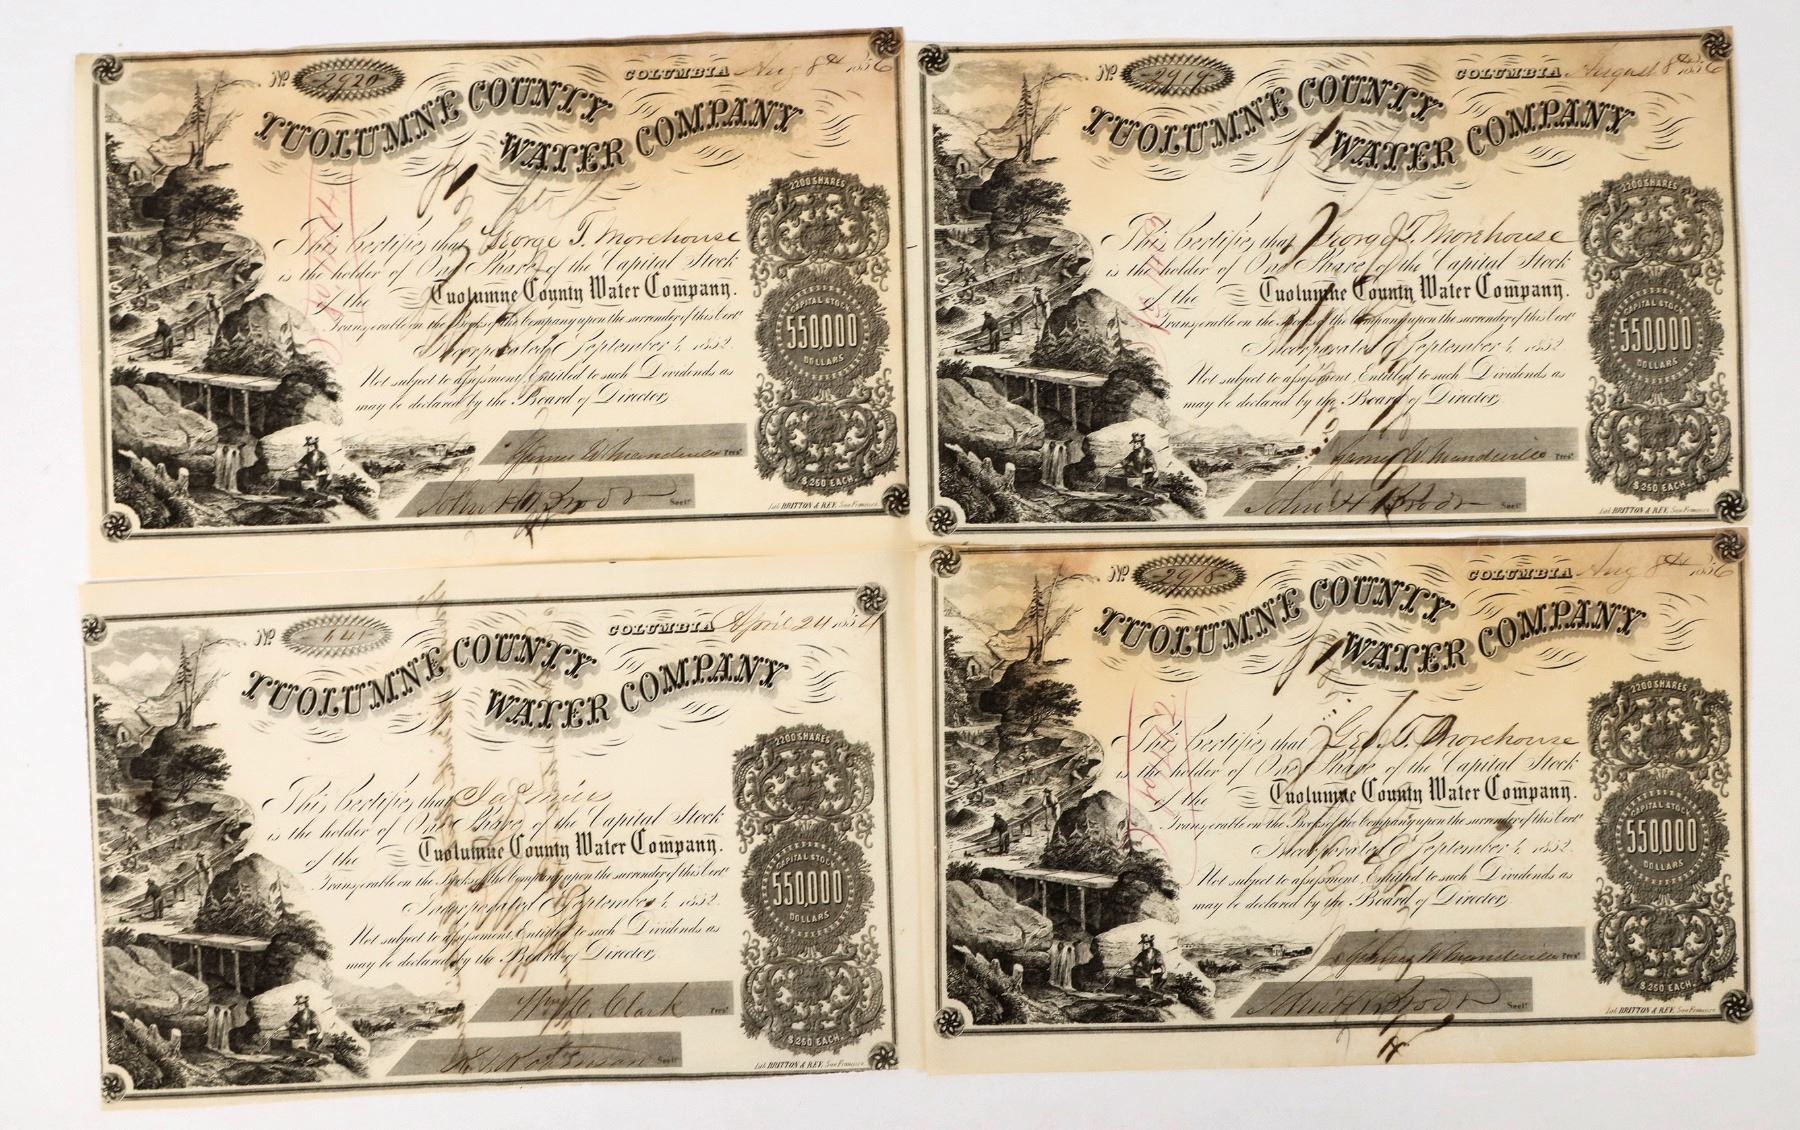 No 2920 COLUMBIA Aug 8th 1856
TUOLUMNE COUNTY
WATER COMPANY
2200 SHARES
This Certifies that George T. Morehouse
is the holder of One Share of the Capital Stock
of the Tuolumne County Water Company.
Transferable on the Books of the Company upon the surrender of this Certt
Incorporated September 4, 1852.
Not subject to assessment, Entitled to such Dividends as
may be declared by the Board of Directors,
CAPITAL STOCK
550,000
DOLLARS
$250 EACH.
James W. Mandeville Prest
John H Secty
Lith. BRITTON & REY, San Francisco
No 2919 COLUMBIA August 8th 1856
TUOLUMNE COUNTY
WATER COMPANY
2200 SHARES
This Certifies that George T. Morehouse
is the holder of One Share of the Capital Stock
of the Tuolumne County Water Company.
Transferable on the Books of the Company upon the surrender of this Certt
Incorporated September 4, 1852.
Not subject to assessment, Entitled to such Dividends as
may be declared by the Board of Directors,
CAPITAL STOCK
550,000
DOLLARS
$250 EACH.
James W. Mandeville Prest
John H Secty
Lith. BRITTON & REY, San Francisco
No 141 COLUMBIA April 24 1854
TUOLUMNE COUNTY
WATER COMPANY
2200 SHARES
This Certifies that
is the holder of One Share of the Capital Stock
of the Tuolumne County Water Company.
Transferable on the Books of the Company upon the surrender of this Certt
Incorporated September 4, 1852.
Not subject to assessment, Entitled to such Dividends as
may be declared by the Board of Directors,
CAPITAL STOCK
550,000
DOLLARS
$250 EACH.
Clark Prest
Robinson Secty
Lith. BRITTON & REY, San Francisco
No 2918 COLUMBIA Aug 8th 1856
TUOLUMNE COUNTY
WATER COMPANY
2200 SHARES
This Certifies that Geo. T. Morehouse
is the holder of One Share of the Capital Stock
of the Tuolumne County Water Company.
Transferable on the Books of the Company upon the surrender of this Certt
Incorporated September 4, 1852.
Not subject to assessment, Entitled to such Dividends as
may be declared by the Board of Directors,
CAPITAL STOCK
550,000
DOLLARS
$250 EACH.
James W Mandeville Prest
John H Secty
Lith. BRITTON & REY, San Francisco